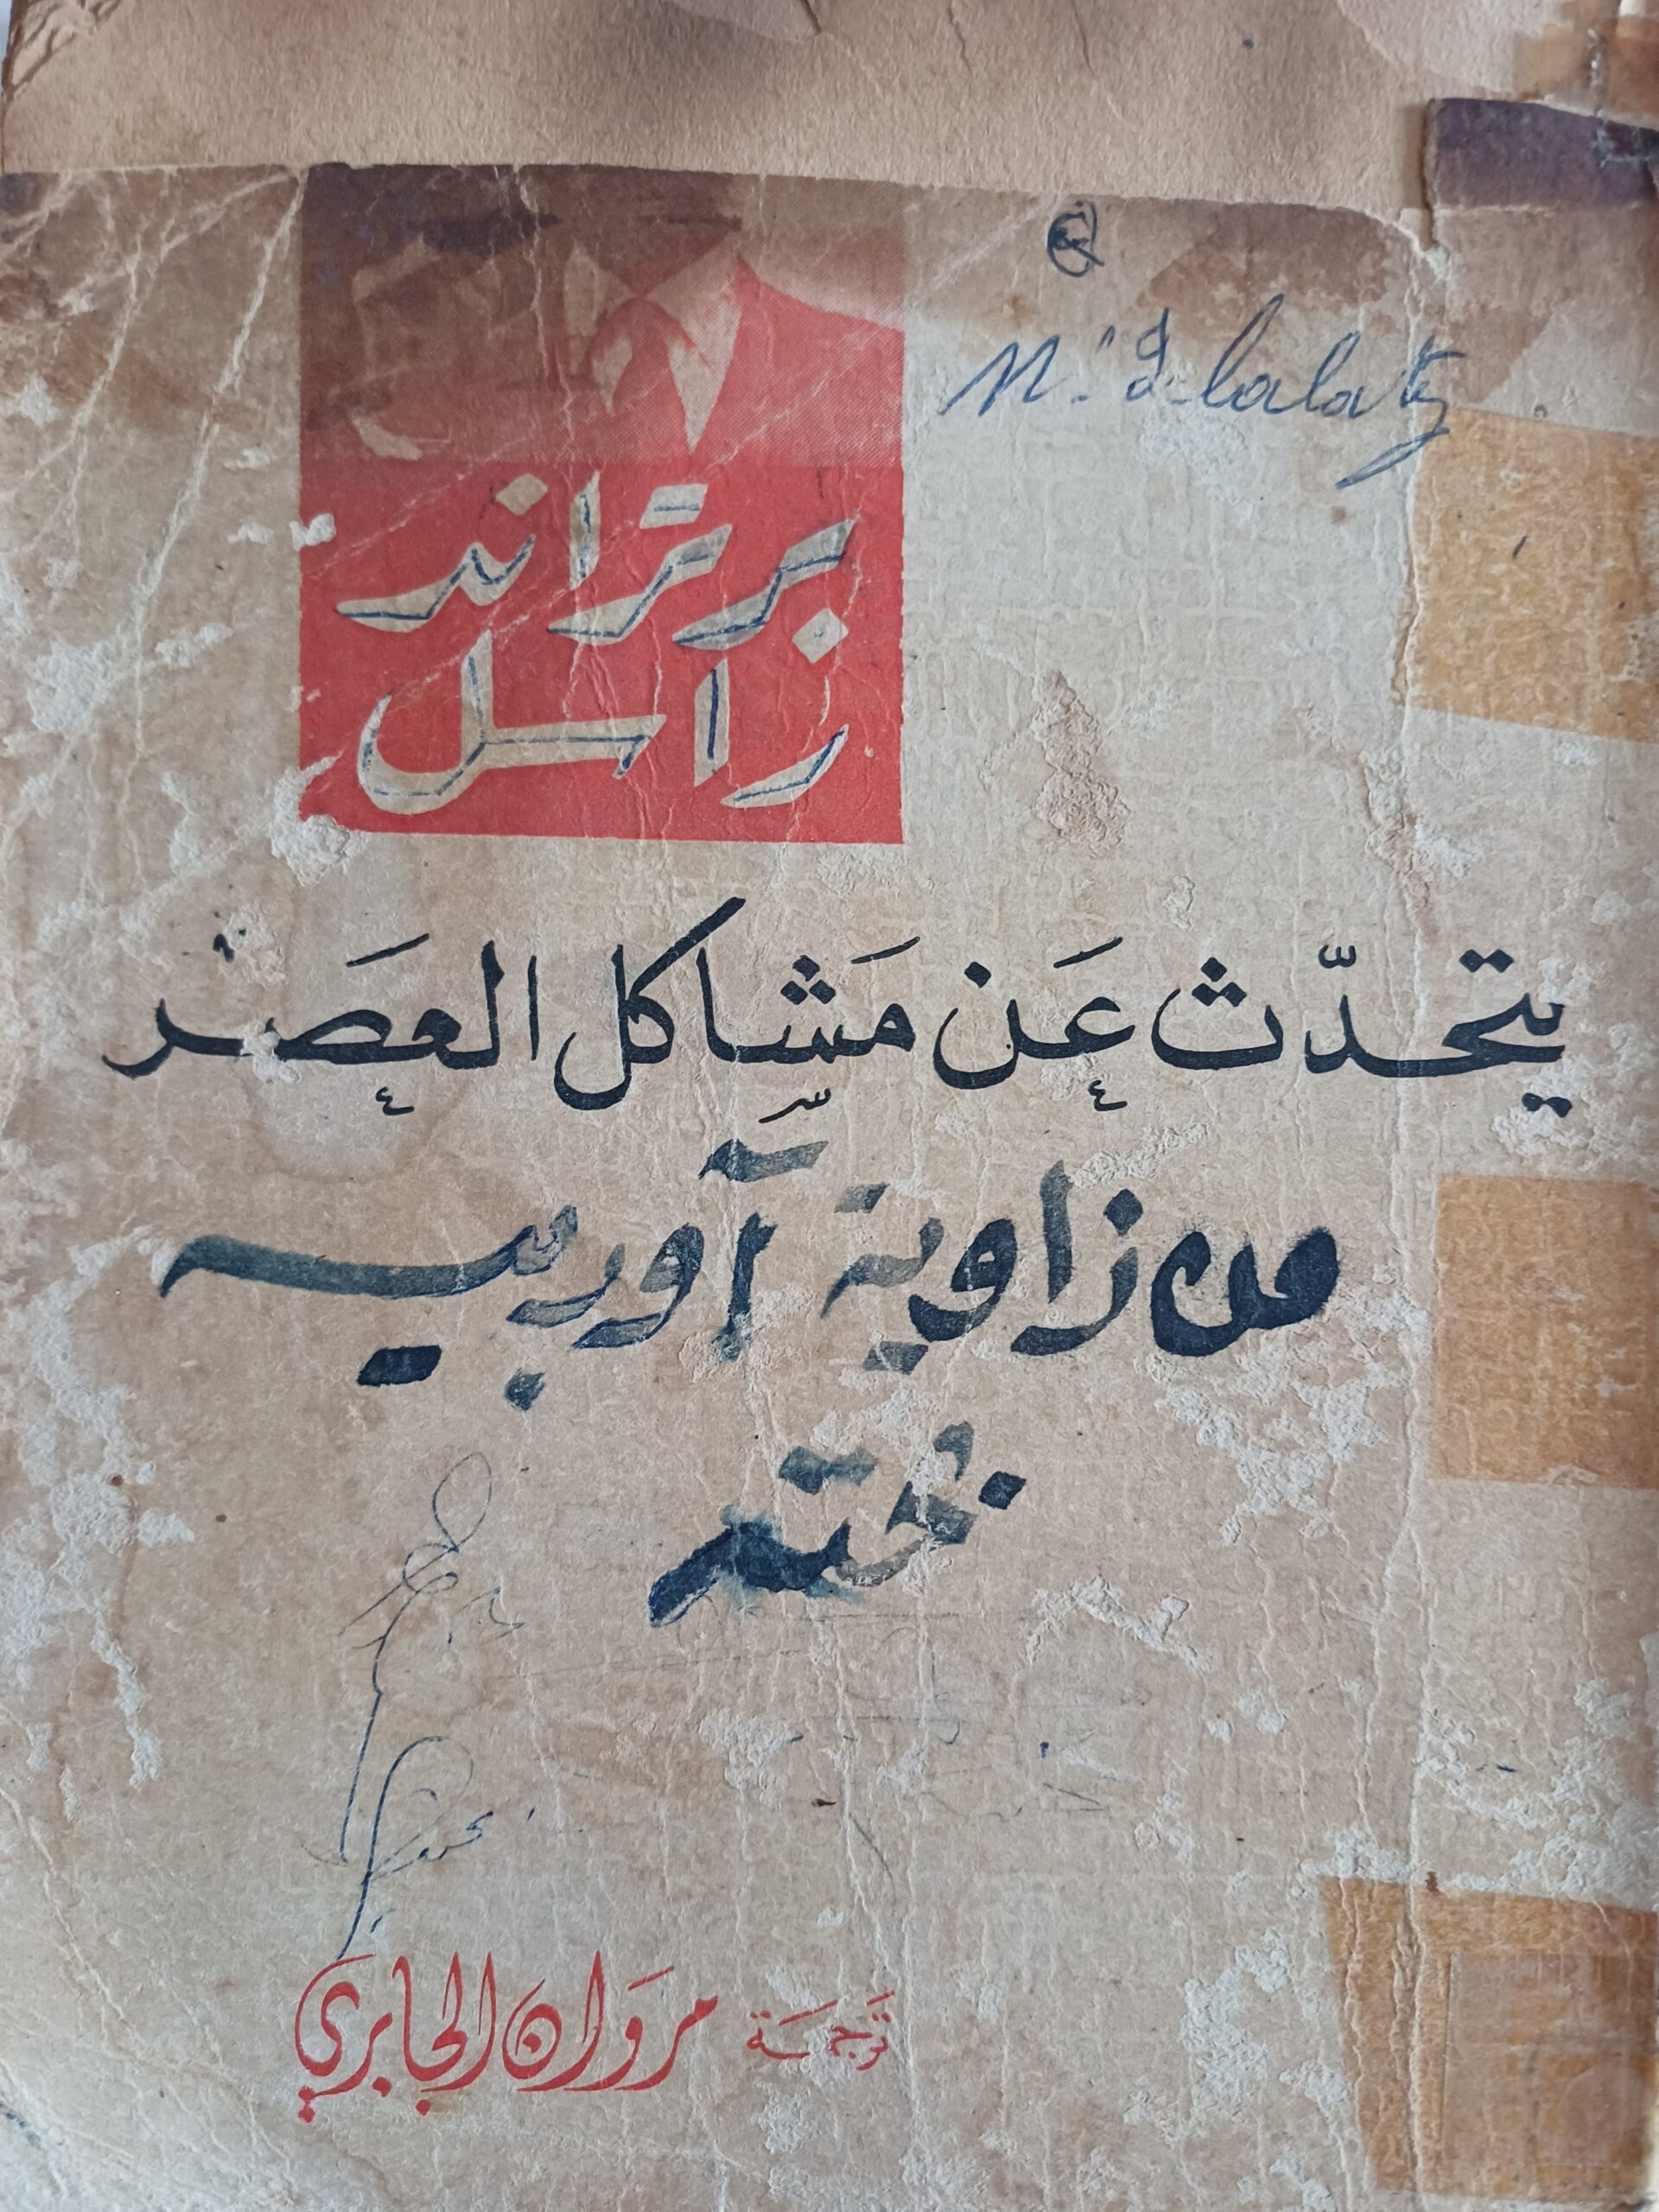 برتراند
راسل
يتحدّث عَن مَشاكل العصَر
من زاوية آوربيه
ترجمَة مروَان الجابري